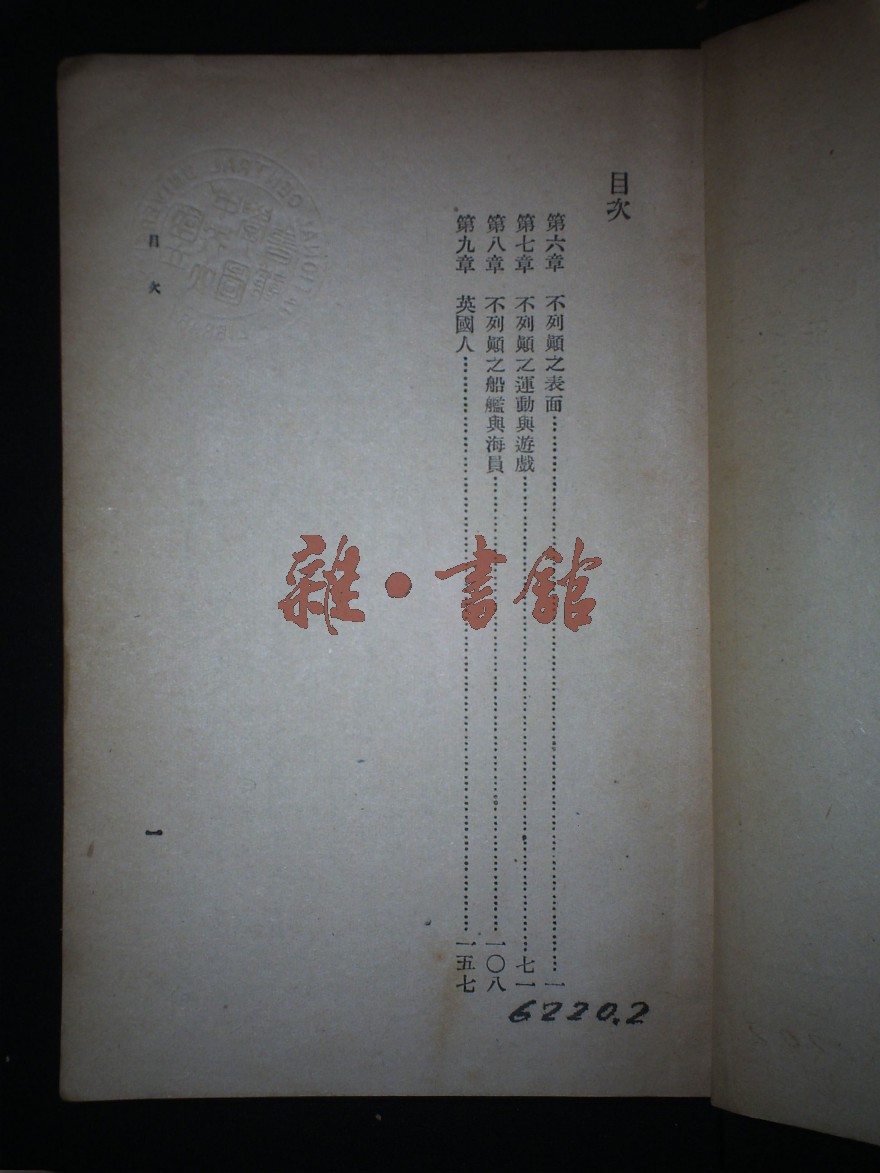 目次
第六章 不列顛之表面……一
第七章 不列顛之運動與遊戲……七一
第八章 不列顛之船艦與海員……一〇八
第九章 英國人……一五七
目次
一
6220.2
雜·書館